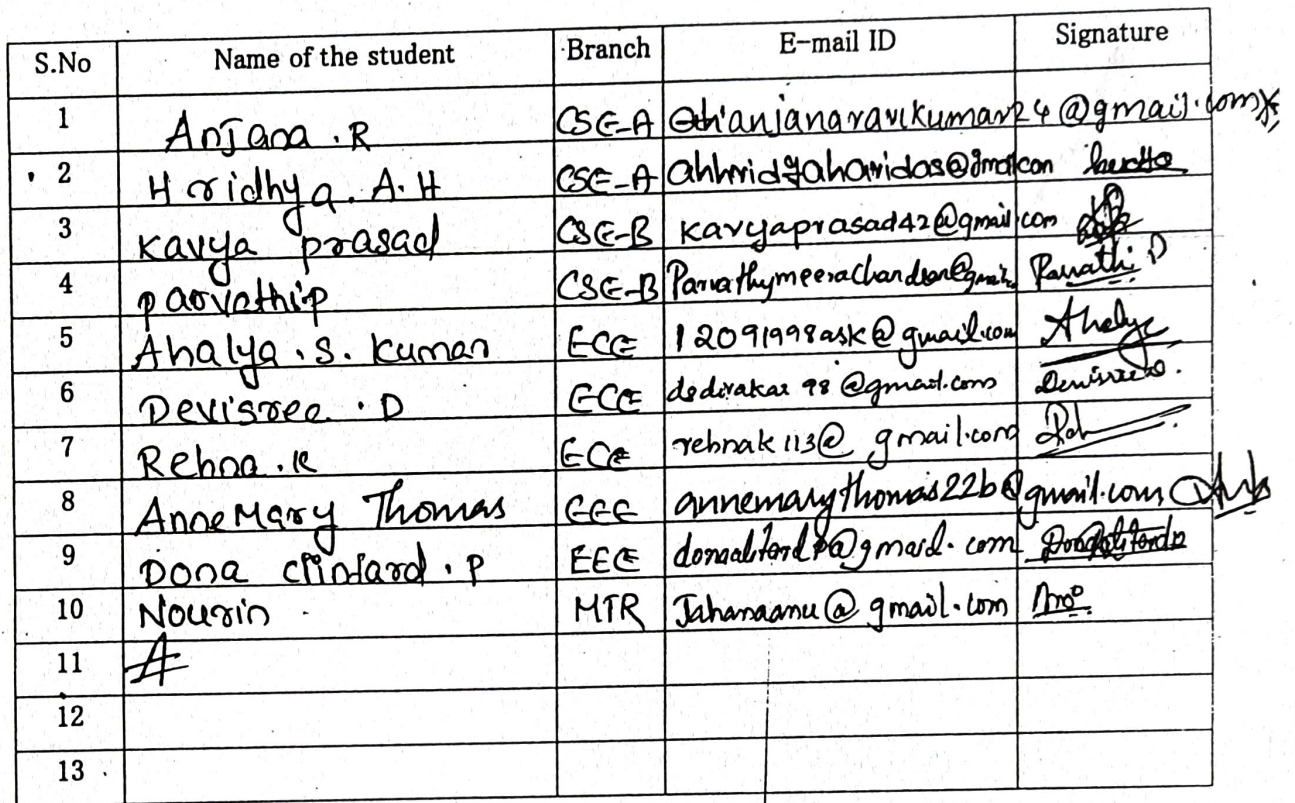 S.No Name of the student Branch E-mail ID Signature
1 Anjana . R CSE-A anjanaravikumar24@gmail.com
2 Hridhya . A. H CSE-A ahhridyaharidas@gmail.com
3 kavya prasad CSE-B kavyaprasad42@gmail.com
4 parvathi p CSE-B Parvathymeerachandran@gmail. Parvathi P
5 Ahalya . S. Kumar ECE 12091998ask@gmail.com Ahalya
6 Devisree . D ECE 98@gmail.com Devisree
7 Rehna . K ECE rehnak113@gmail.com
8 Anne Mary Thomas EEE annemarythomas22b@gmail.com
9 Dona cliffard . P EEE
10 Nourin MTR Jahanaanu@gmail.com
11
12
13